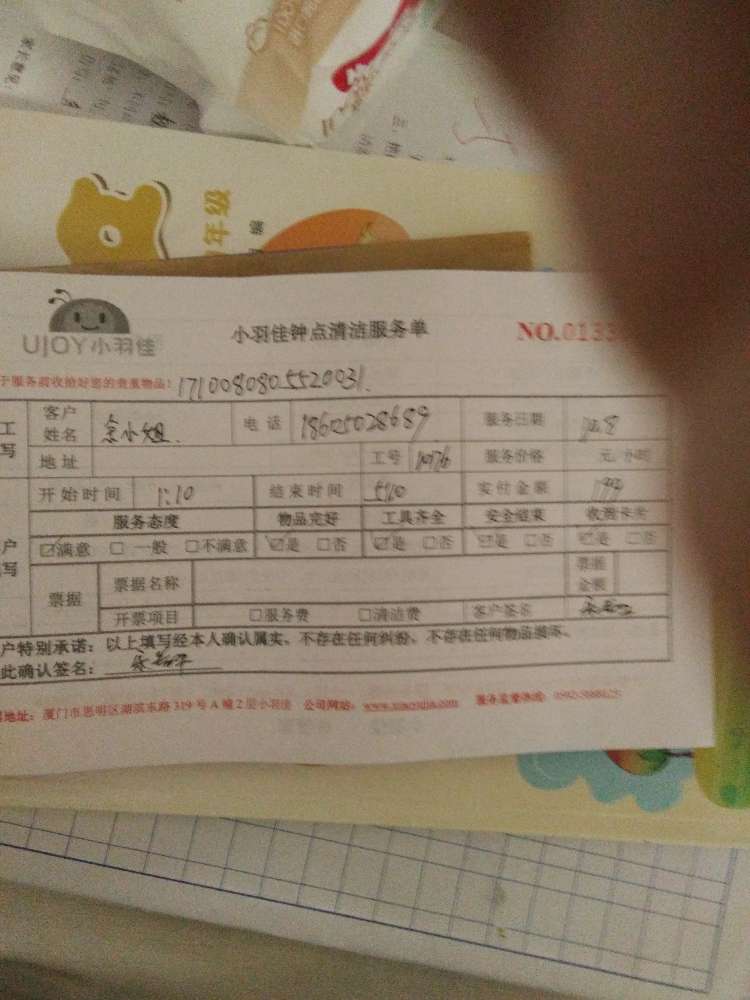 年级
UJOY小羽佳
小羽佳钟点清洁服务单
NO.0133
于服务前收拾好您的贵重物品: 1710080805520031.
工 客户姓名 余小姐. 电话 18605028689 服务日期 10.8
写 地址 工号 1076 服务价格 元/小时
开始时间 1:10 结束时间 5:10 实付金额
服务态度 物品完好 工具齐全 安全结束 收费卡类
户 ☑满意 □一般 □不满意 ☑是 □否 ☑是 □否 ☑是 □否 ☑是 □否
写 票据 票据名称 票据金额
开票项目 □服务费 □清洁费 客户签名
户特别承诺: 以上填写经本人确认属实、不存在任何纠纷、不存在任何物品损坏。
此确认签名:
地址: 厦门市思明区湖滨东路319号A幢2层小羽佳 公司网站: www.xiaoyujia.com 服务监督热线: